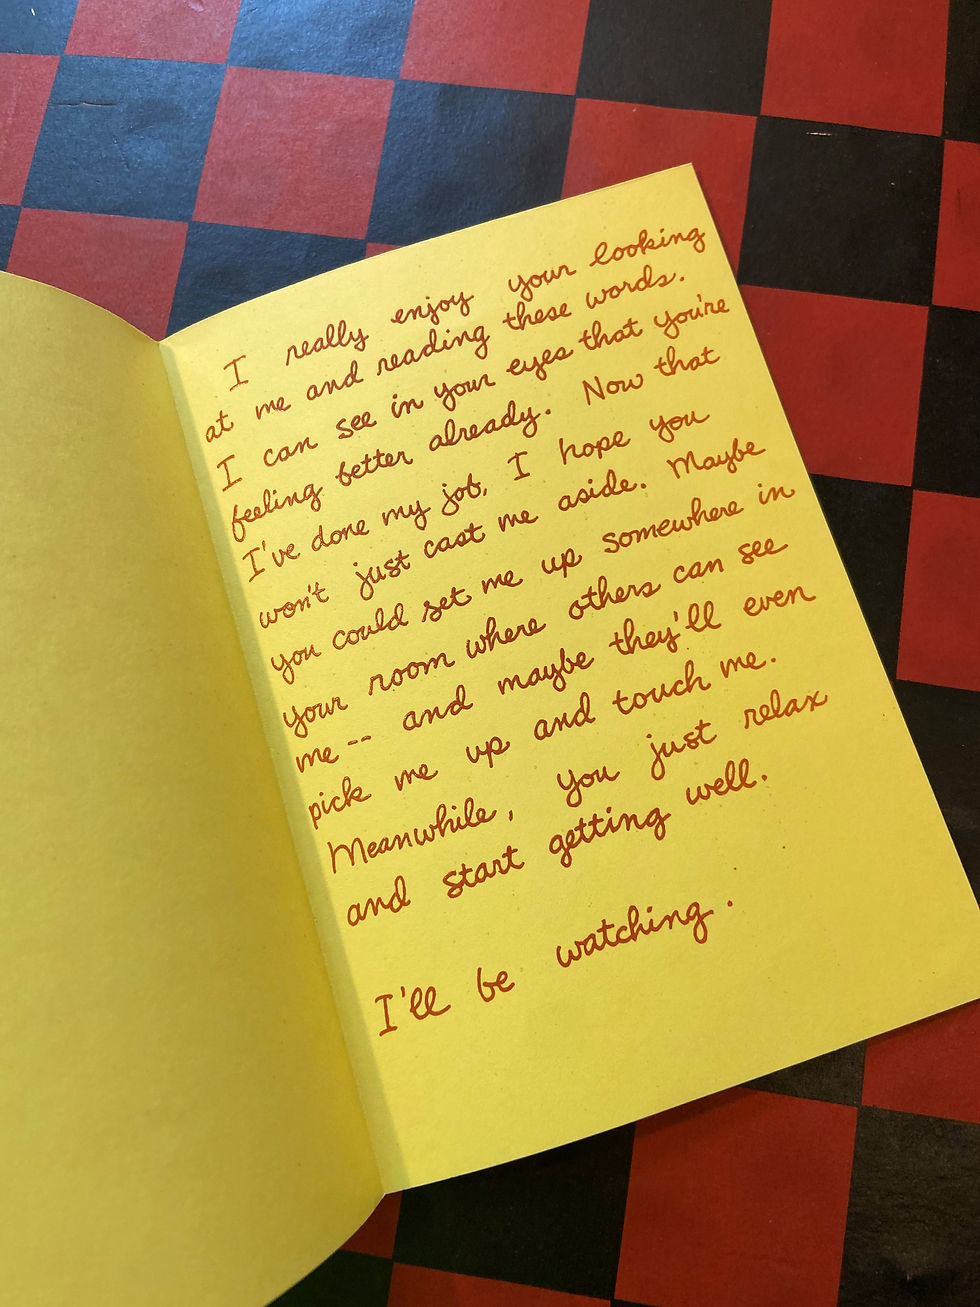 I really enjoy your looking
at me and reading these words.
I can see in your eyes that you're
feeling better already. Now that
I've done my job, I hope you
won't just cast me aside. Maybe
you could set me up somewhere in
your room where others can see
me -- and maybe they'll even
pick me up and touch me.
Meanwhile, you just relax
and start getting well.
I'll be watching.